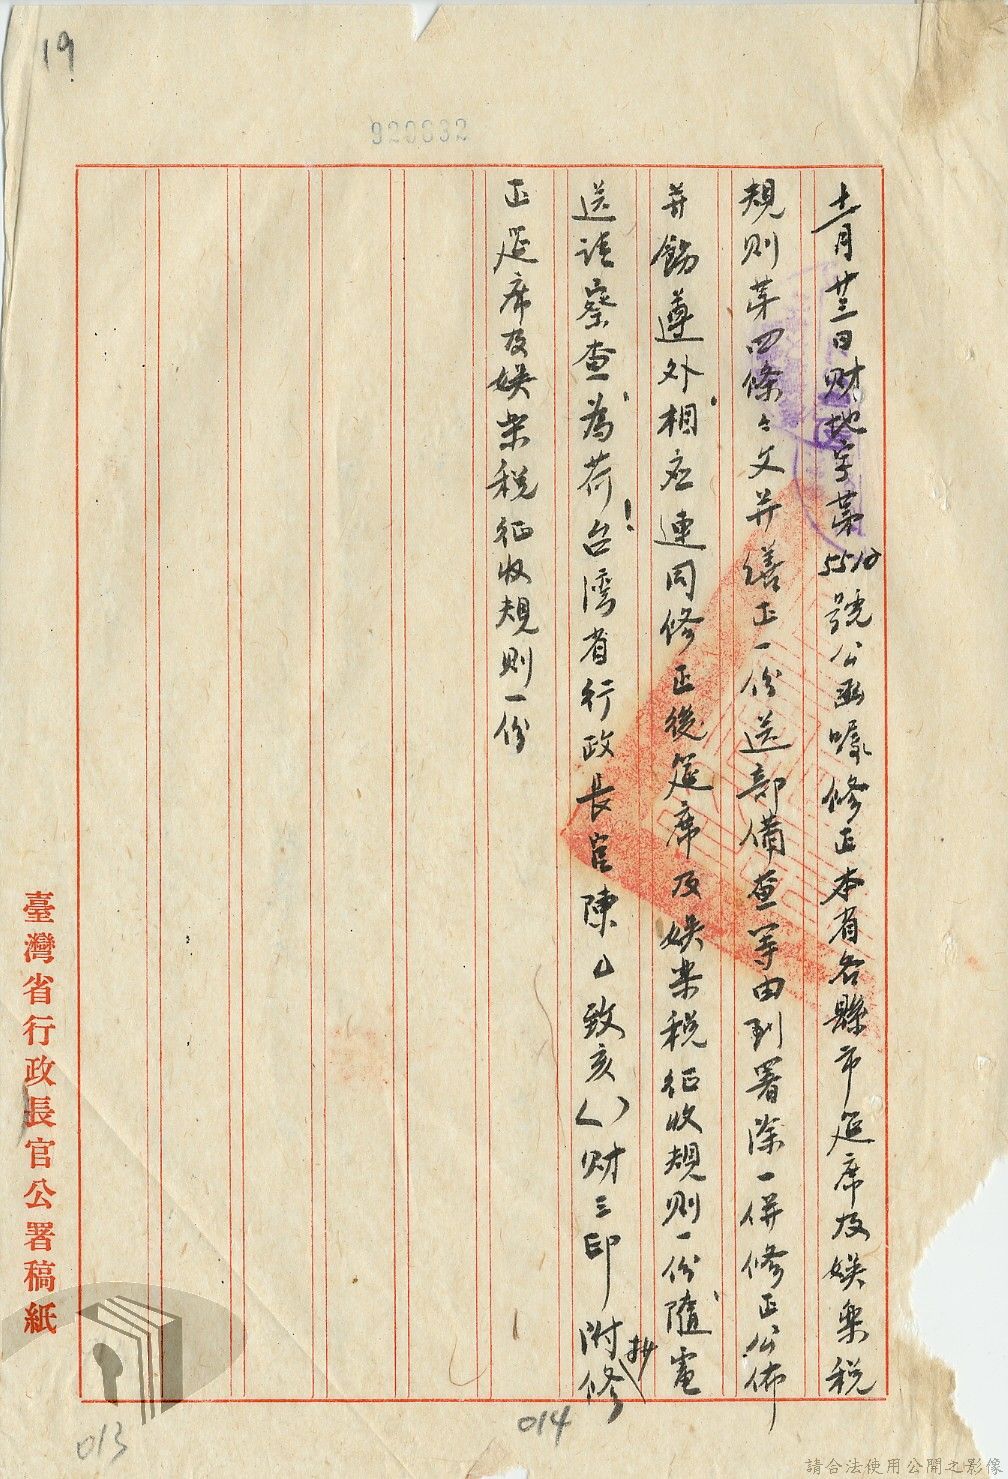 19
920632
十一月廿三日財地字第5510號公函嘱修正本省各縣市筵席及娛樂税
規則第四條々文并繕正一份送部備查等由到署除一併修正公佈
并飭遵外相应連同修正後筵席及娛楽税征收規則一份隨電
送請察查為荷！台湾省行政長官陳△致亥（）财三印附抄修
正筵席及娛楽税征收規則一份
臺灣省行政長官公署稿紙
013
014
請合法使用公開之影像